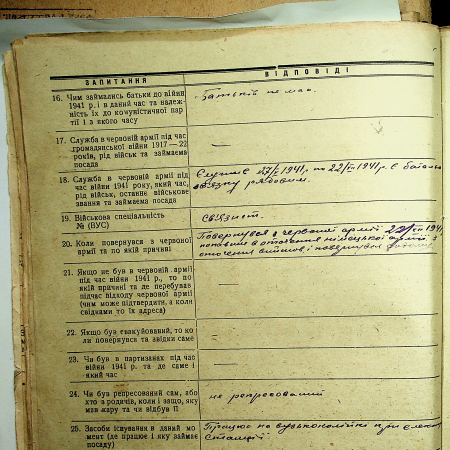 ЗАПИТАННЯ
ВІДПОВІДІ
16. Чим займались батьки до війни
1941 р. і в даний час та належ-
ність їх до комуністичної пар
тії і з якого часу
Батьків не маю.
17. Служба в червоній армії під час
громадянської війни 1917—22
років, рід військ та займаема
посада
—
18. Служба в червоній армії під
час війни 1941 року, який час,
рід військ, останнє військове
звання та займаема посада
Служив 1941 р. по 22/ 1941 р. в
зв'язку рядовим.
19. Військова спеціальність
№ (ВУС)
зв'язист.
20. Коли повернувся з червоної
армії та по якій причині
Повернувся з червоної армії 1941
попавши в оточення німецької армії, з
оточення вийшов, і повернувся
21. Якщо не був в червоній армії
під час війни 1941 р., то по
якій причині та де перебував
підчас відходу червоної армії
(чим може підтвердити, а коли
свідками то їх адреса)
—
22. Якщо був евакуйований, то ко
ли повернувся та звідки саме
—
23. Чи був в партизанах під час
війни 1941 р. та де саме і
який час
—
24. Чи був репресований сам, або
хто з родичів, коли і защо, яку
мав кару та чи відбув її
не репресований
25. Засоби існування в даний мо
мент (де працює і яку займає
посаду)
Працює на вузькоколійці при
станції